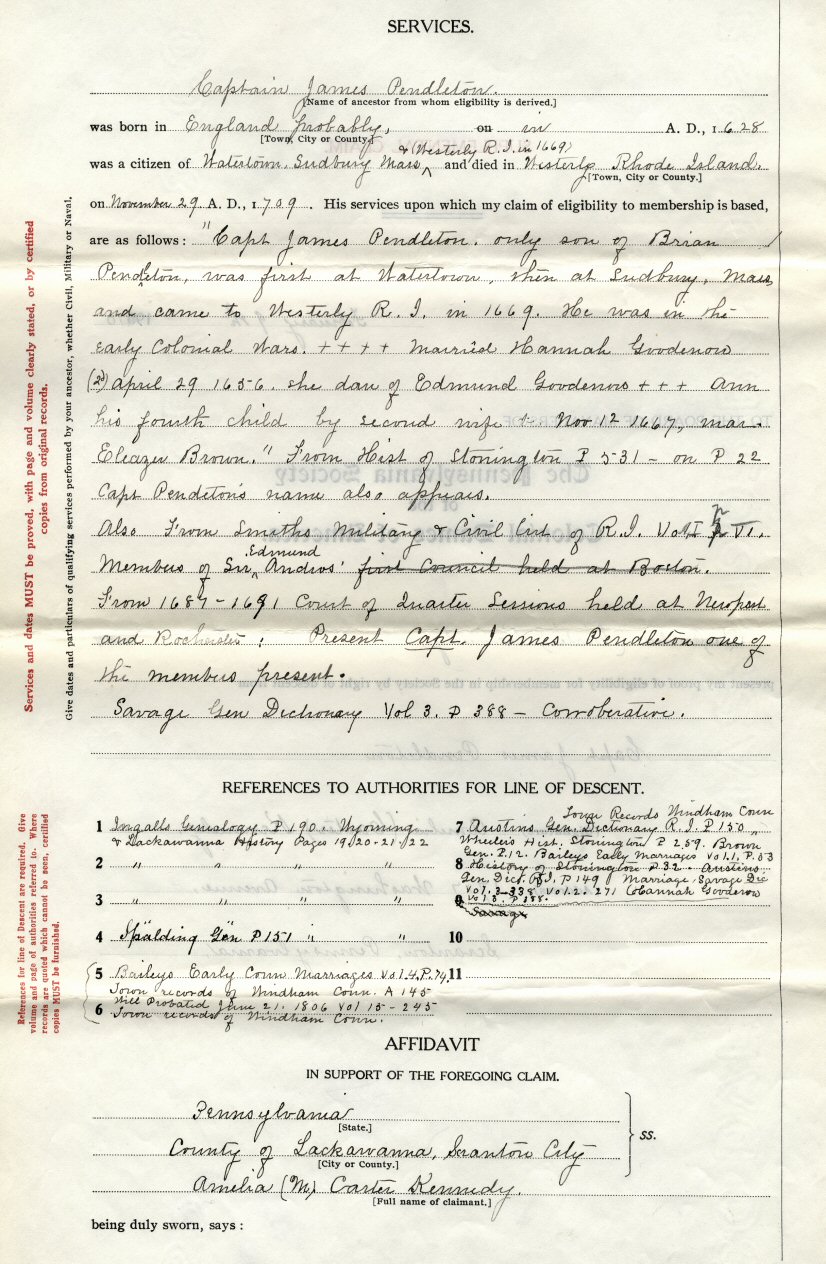 SERVICES.
Captain James Pendleton.
[Name of ancestor from whom eligibility is derived.]
was born in England probably, on in A. D., 1628
[Town, City or County.]
& (Westerly R. I. in 1669)
was a citizen of Watertown, Sudbury Mass ^ and died in Westerly Rhode Island.
[Town, City or County.]
on November 29 A. D., 1709. His services upon which my claim of eligibility to membership is based,
are as follows: "Capt James Pendleton. only son of Brian
Pendleton, was first at Watertown, then at Sudbury, Mass
and came to Westerly R. I. in 1669. He was in the
early Colonial Wars. + + + + Married Hannah Goodenow
(2d) April 29 1656. she dau of Edmund Goodenow + + + Ann
his fourth child by second wife + Nov 12 1667, mar.
Eleazer Brown." From Hist of Stonington P 531 - on P 22
Capt Pendeton's name also appears.
Also From Smiths Military & Civil List of R. I. Vol I p VI.
Edmund
Members of Sir ^ Andros' first Council held at Boston.
From 1687-1691 Court of Quarter Sessions held at Newport
and Rochester: Present Capt. James Pendleton one of
the members present.
Savage Gen Dictionary Vol 3. P 388 - Corroberative.
REFERENCES TO AUTHORITIES FOR LINE OF DESCENT.
1 Ingalls Genealogy P 190. Wyoming
& Lackawanna History Pages 19.20-21.22
2 " " "
3 " " "
4 Spalding Gen P 151 " "
5 Baileys Early Conn Marriages Vol.4.P.74,
Town records of Windham Conn. A 145
6 Will Probated June 21. 1806 Vol 15-245
Town records of Windham Conn.
Town Records Windham Conn
7 Austins Gen. Dictionary R. I. P 150 "
Wheeler's Hist. Stonington P 259. Brown
Gen. P.12. Baileys Early Marriages Vol.1, P.53
8 History of Stonington P 32 - Austins
Gen Dict. R.I. P 149 Marriage, Savage Dic
Vol.3-338 Vol.2.271 Hannah Goodenow
9 Vol 3. P 388.
Savage
10
11
AFFIDAVIT
IN SUPPORT OF THE FOREGOING CLAIM.
Pennsylvania
[State.]
County of Lackawanna, Scranton City
[City or County.]
ss.
Amelia (M) Carter Kennedy.
[Full name of claimant.]
being duly sworn, says:
Services and dates MUST be proved, with page and volume clearly stated, or by certified
copies from original records.
Give dates and particulars of qualifying services performed by your ancestor, whether Civil, Military or Naval.
References for line of Descent are required. Give
volume and page of authorities referred to. Where
records are quoted which cannot be seen, certified
copies MUST be furnished.